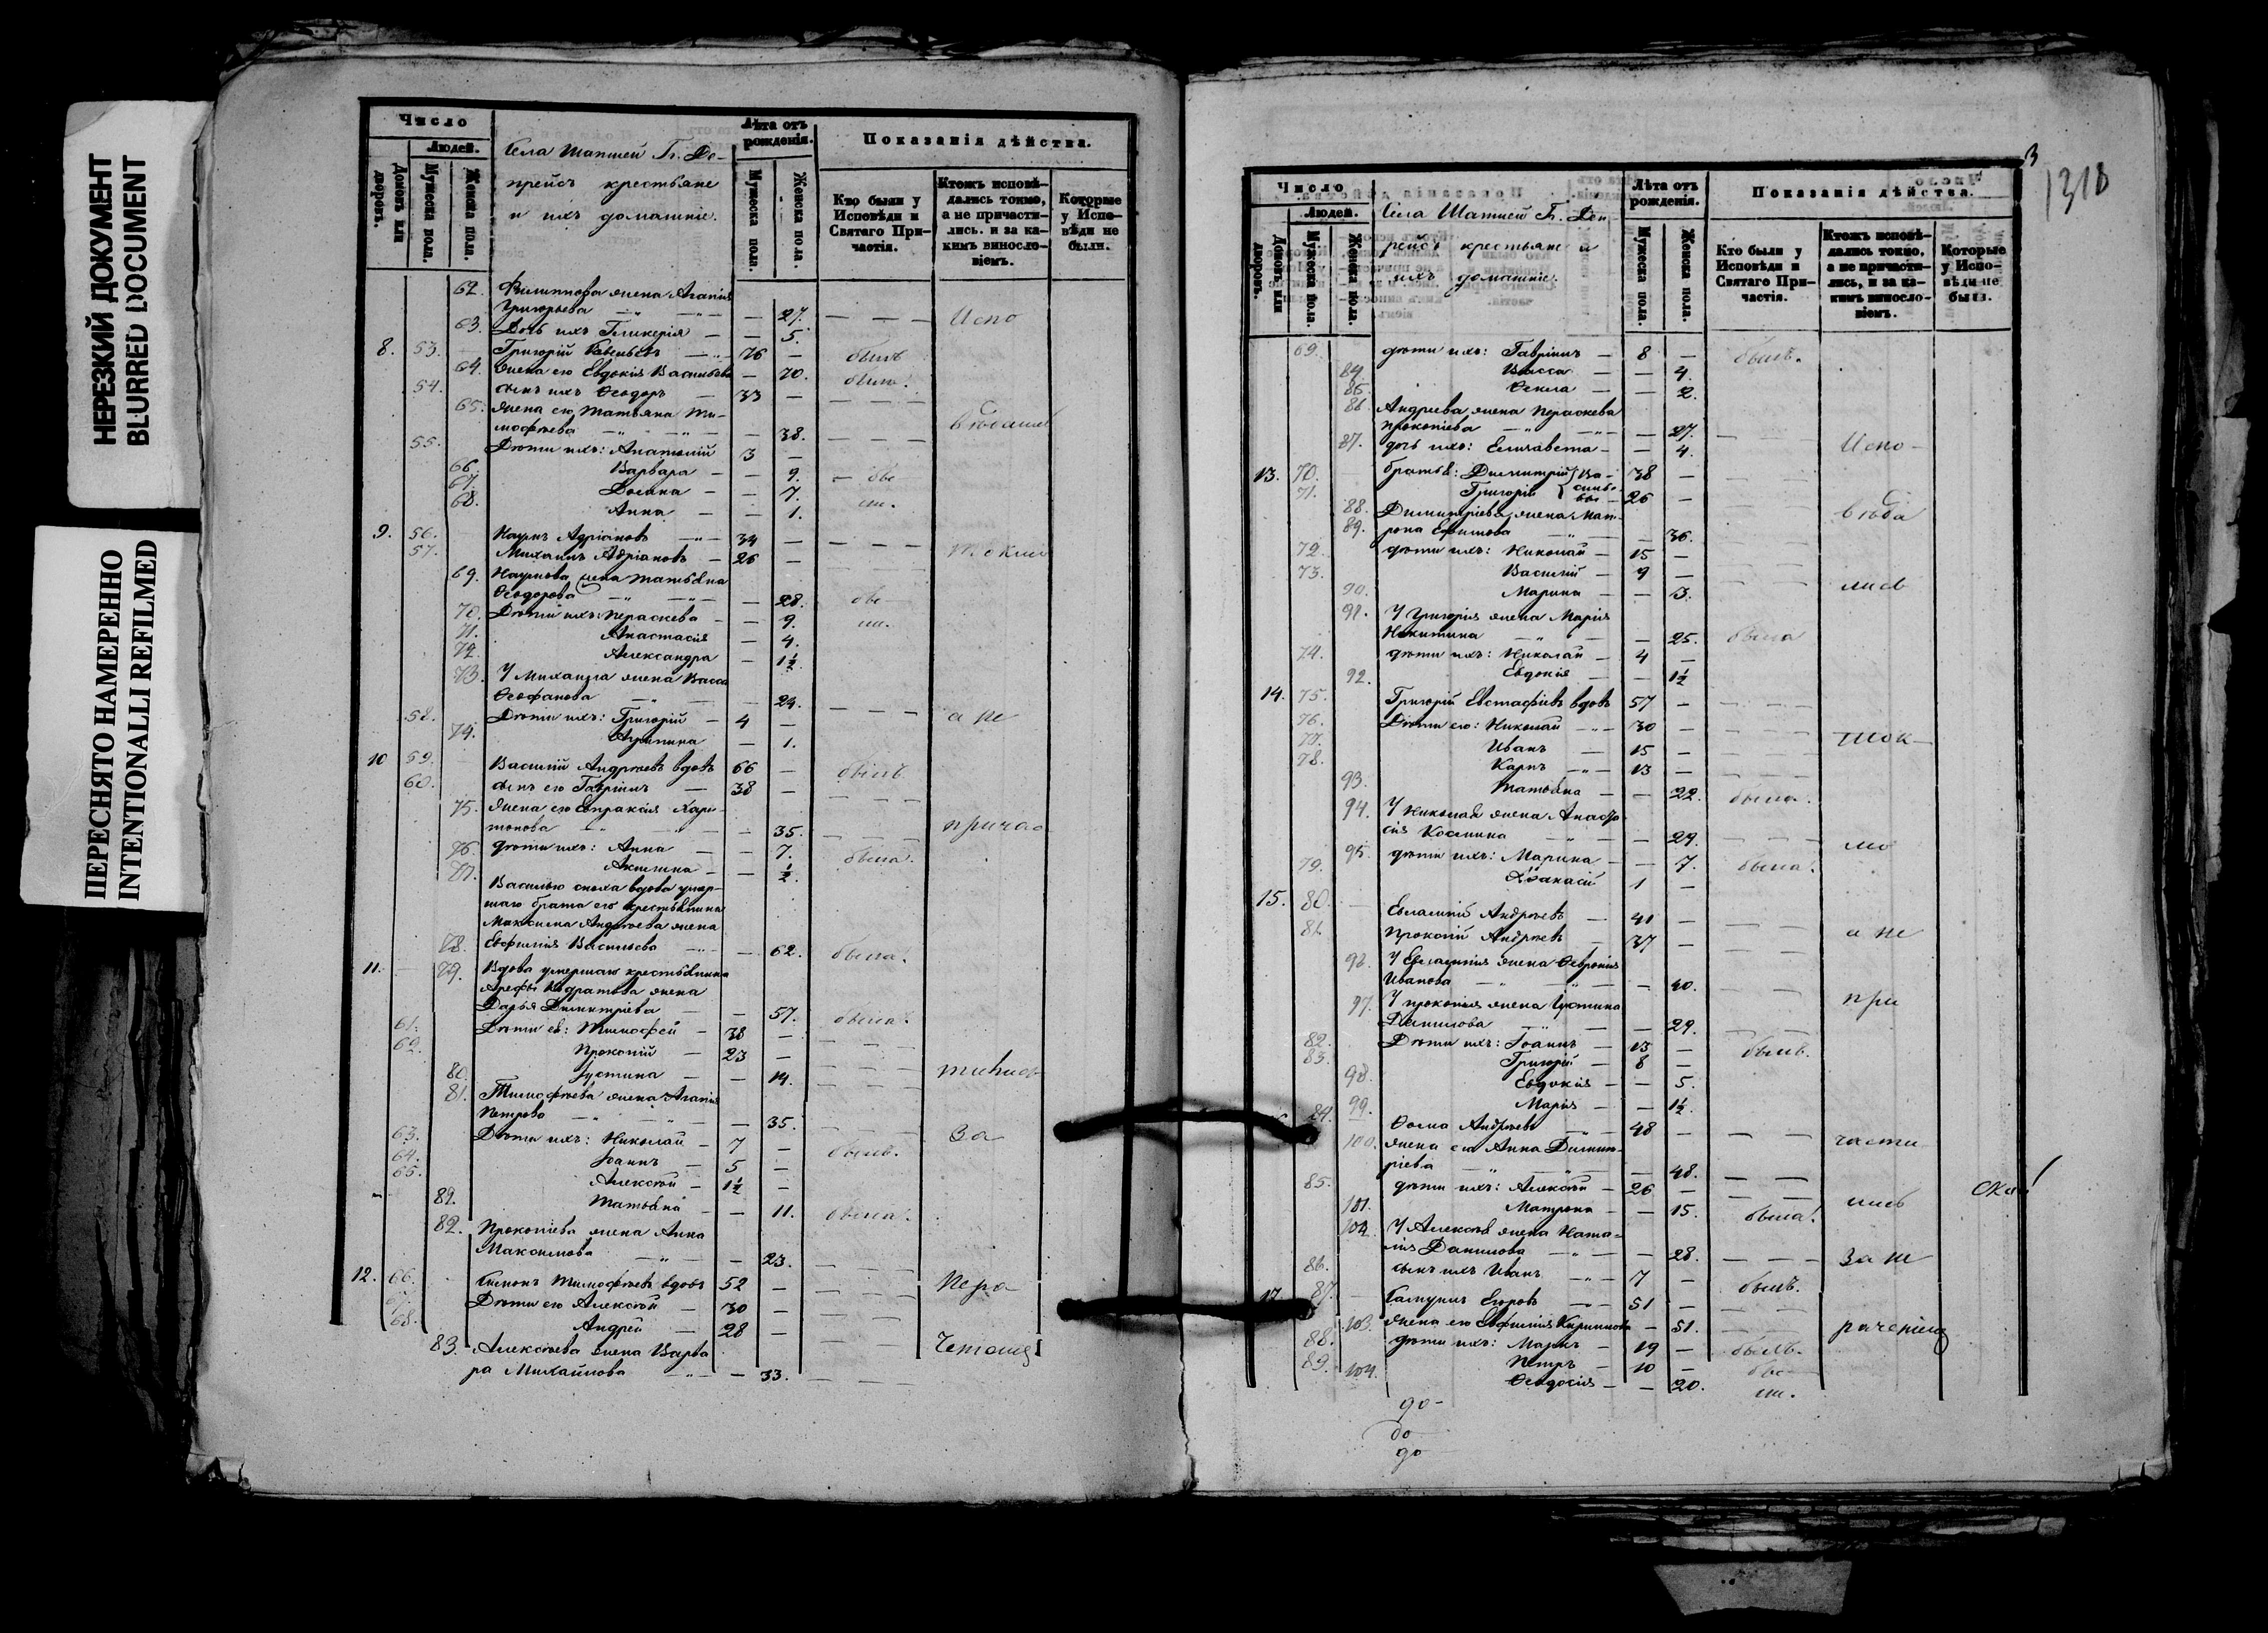 НЕРЕЗКИЙ ДОКУМЕНТ
BLURRED DOCUMENT
ПЕРЕСНЯТО НАМЕРЕННО
INTENTIONALLI REFILMED
Число
Людей.
Домовъ или дворовъ.
Мужеска пола.
Женска пола.
Села Шапшей Г.
крестьяне
и ихъ домашніе.
Лѣта отъ рожденія.
Мужеска пола.
Женска пола.
Показанія дѣйства.
Кто были у Исповѣди и Святаго Причастія.
Ктожъ исповѣдались токмо, а не причастились. и за какимъ винословіемъ.
Которые у Исповѣди не были.
62. Филиппова жена Агапія
Григорьева — 27. Испо
63. Дочь ихъ Гликерія — 5.
8. 53. Григорій — 76 — былъ
64. Жена его Евдокія Васильева — 70. была.
54. Сынъ ихъ Ѳеодоръ — 33 —
65. Жена его Татьяна Ти-
моѳеева — 38.
55. Дѣти ихъ: Анатолій 3 —
66. Варвара — 9. — бы-
67. Домна — 7. ли.
68. Анна — 1.
9. 56. Наумъ Адріановъ — 34 —
57. Михаилъ Адріановъ — 26 — токмо
69. Наумова жена Татьяна
Ѳеодорова — 28. бы-
70. Дѣти ихъ: Параскева — 9. ли.
71. Анастасія — 4.
72. Александра — 1½
73. У Михаила жена Васса
Ѳеофанова — 24.
58. Дѣти ихъ: Григорій — 4 — а не
74. Акулина — 1.
10 59. Василій Андреевъ вдовъ 66 — былъ
60. Сынъ его Гавріилъ — 38 —
75. Жена его Евпраксія Хари-
тонова — 35. причас
76. Дѣти ихъ: Анна — 7. была.
77. Акилина — ½.
Василью сноха вдова умер-
шаго брата его крестьянина
Максима Андреева жена
78. Евфимія Васильева — 62. была.
11. 79. Вдова умершаго крестьянина
Арефы Кодратова жена
Дарья Димитріева — 57. была.
61. Дѣти ея: Тимоѳей — 38 —
62. Прокопій — 23 —
80. Іустина — 14.
81. Тимоѳеева жена Агапія
Петрова — 35. За
63. Дѣти ихъ: Николай — 7 — былъ.
64. Іоаннъ — 5 —
65. Алексѣй — 1½ —
82. Татьяна — 11. была.
82. Прокопіева жена Анна
Максимова — 23.
12. 66. Тимоѳеевъ вдовъ 52 — Нера
67. Дѣти его Алексѣй — 30 —
68. Андрей — 28 —
83. Алексѣева жена Варва
ра Михайлова — 33.
3
1310
Число
Людей.
Домовъ или дворовъ.
Мужеска пола.
Женска пола.
Села Шапшей Г.
крестьяне и
ихъ домашніе.
Лѣта отъ рожденія.
Мужеска пола.
Женска пола.
Показанія дѣйства.
Кто были у Исповѣди и Святаго Причастія.
Ктожъ исповѣдались токмо, а не причастились, и за какимъ винословіемъ.
Которые у Исповѣди не были.
69. дѣти ихъ: Гавріилъ — 8 — былъ.
84. Васса — 4.
85. Ѳекла — 2.
86. Андреева жена Параскева
Прокопіева — 27.
87. дочь ихъ: Елизавета — 4. Испо-
13. 70. братья: Димитрій } Ва- 38 —
71. Григорій } сильевы 26 —
88. Димитріева жена Мат-
89. рона Ефимова — 36.
72. дѣти ихъ: Николай — 15 —
73. Василій — 9 —
90. Марина — 3. лись
91. У Григорія жена Марія
Никитина — 25. была
74. дѣти ихъ: Николай — 4 —
92. Евдокія — 1½
14. 75. Григорій Евстафіевъ вдовъ 57 —
76. Дѣти его: Николай — 30 —
77. Иванъ — 15 — ток-
78. Карпъ — 13 —
93. Татьяна — 22. была.
94. У Николая жена Анаста
сія Космина — 29. мо
95. дѣти ихъ: Марина — 7. была.
79. Аѳанасій 1 —
15. 80. Евлампій Андреевъ — 41 —
81. Прокопій Андреевъ — 37 — а не
96. У Евлампія жена Ѳевронія
Иванова — 40.
97. У Прокопія жена Іустина при
Данилова — 29.
82. Дѣти ихъ: Іоаннъ — 13 — былъ.
83. Григорій — 8 —
98. Евдокія — 5.
99. Марія — 1½.
84. Ѳома Андреевъ 48 —
100. Жена его Анна Димит- части
ріева — 48.
85. дѣти ихъ: Алексѣй — 26 —
101. Матрона — 15. была. лись
102. У Алексѣя жена Ната-
лія Данилова — 28. За не
86. сынъ ихъ Иванъ — 7 — былъ.
17. 87. Самуилъ Егоровъ — 51 —
103. Жена его Евфимія Кириллова — 51.
88. дѣти ихъ: Маркъ — 19 — былъ.
89. Петръ — 10 — бы-
104. Ѳеодосія — 20. ли.
до-
до
до